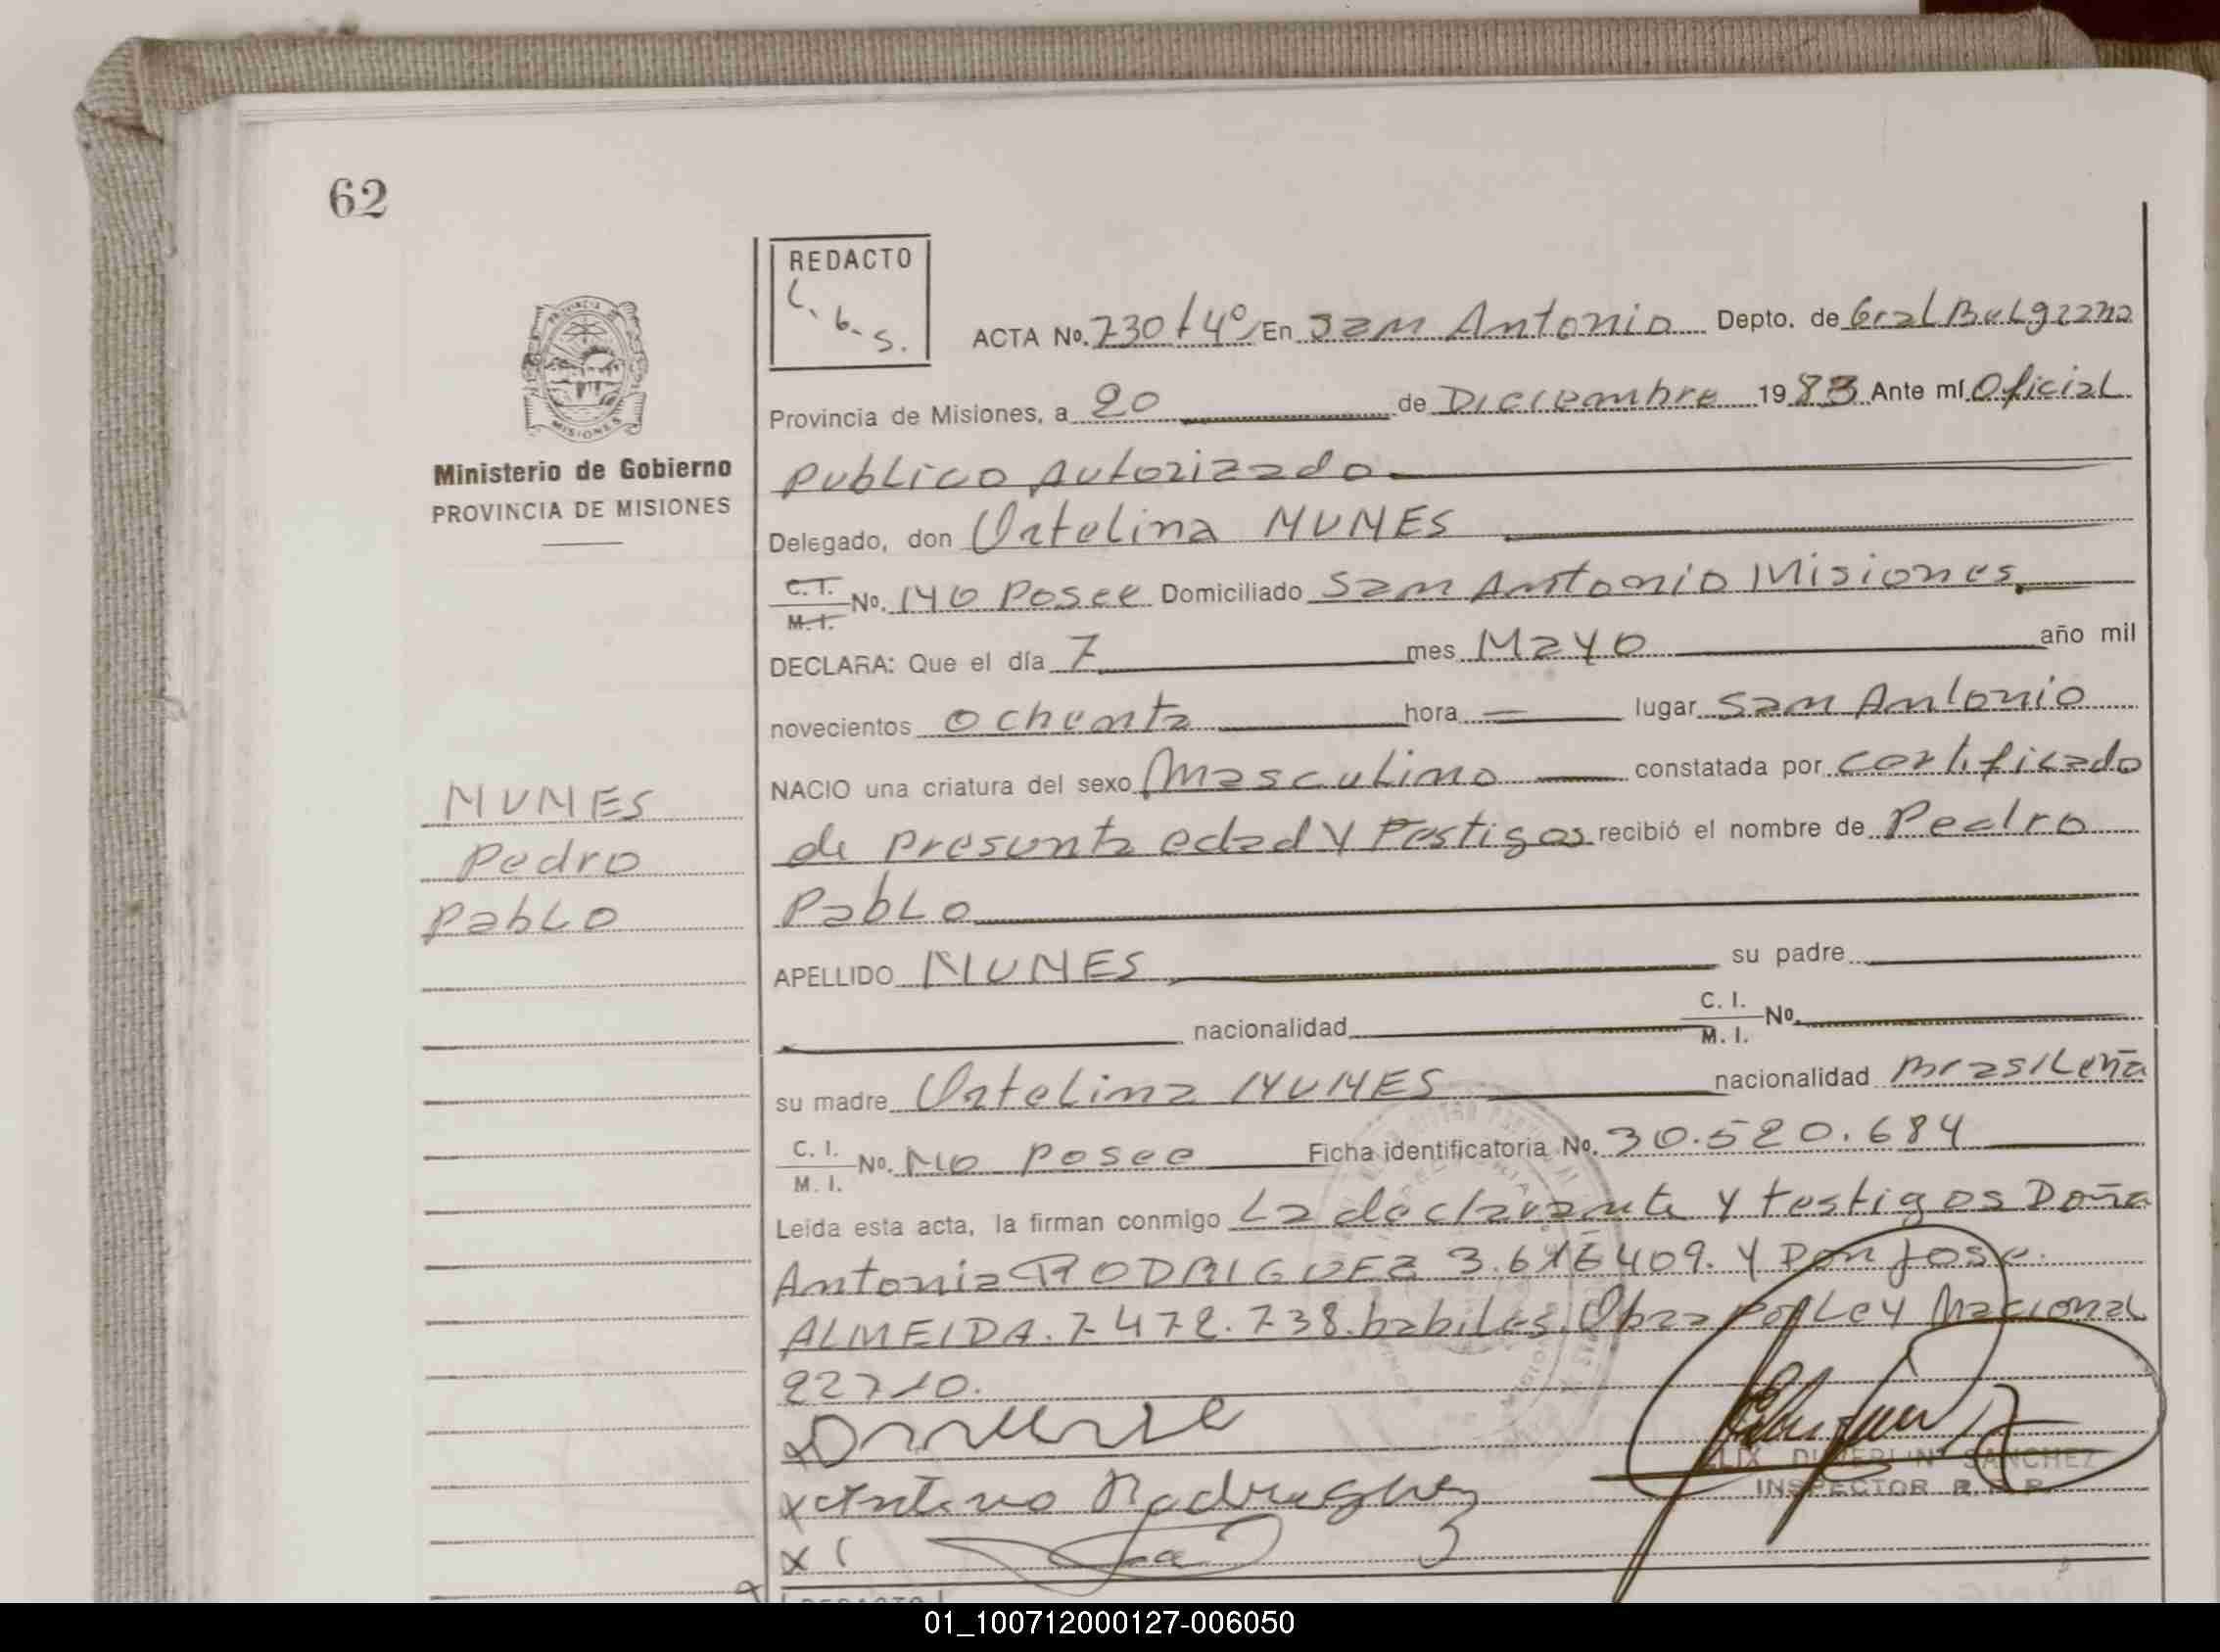 62
REDACTO
L. b. S.
ACTA Nº. 730 t 4º En San Antonio Depto. de Gral Belgrano
Provincia de Misiones, a 20 de Diciembre 1983 Ante mí Oficial
Publico Autorizado
Ministerio de Gobierno
PROVINCIA DE MISIONES
Delegado, don Ortelina NUNES
C.I. M.I. Nº. No Posee Domiciliado San Antonio Misiones.
DECLARA: Que el día 7 mes Mayo año mil
novecientos ochenta hora — lugar San Antonio
NACIO una criatura del sexo Masculino constatada por certificado
de presunta edad y Testigos recibió el nombre de Pedro
Pablo
NUNES
Pedro
Pablo
APELLIDO NUNES su padre
nacionalidad C. I. M. I. Nº.
su madre Ortelina NUNES nacionalidad Brasileña
C. I. M. I. Nº. No posee Ficha identificatoria Nº. 30.520.684
Leida esta acta, la firman conmigo La declarante y testigos Doña
Antonia RODRIGUEZ 409. y Don Jose
ALMEIDA. 7.472.738. habiles. Obra por Ley Nacional
22710.
x Antonio Rodrighez
x
SANCHEZ
INSPECTOR R.P.P.
01_100712000127-006050